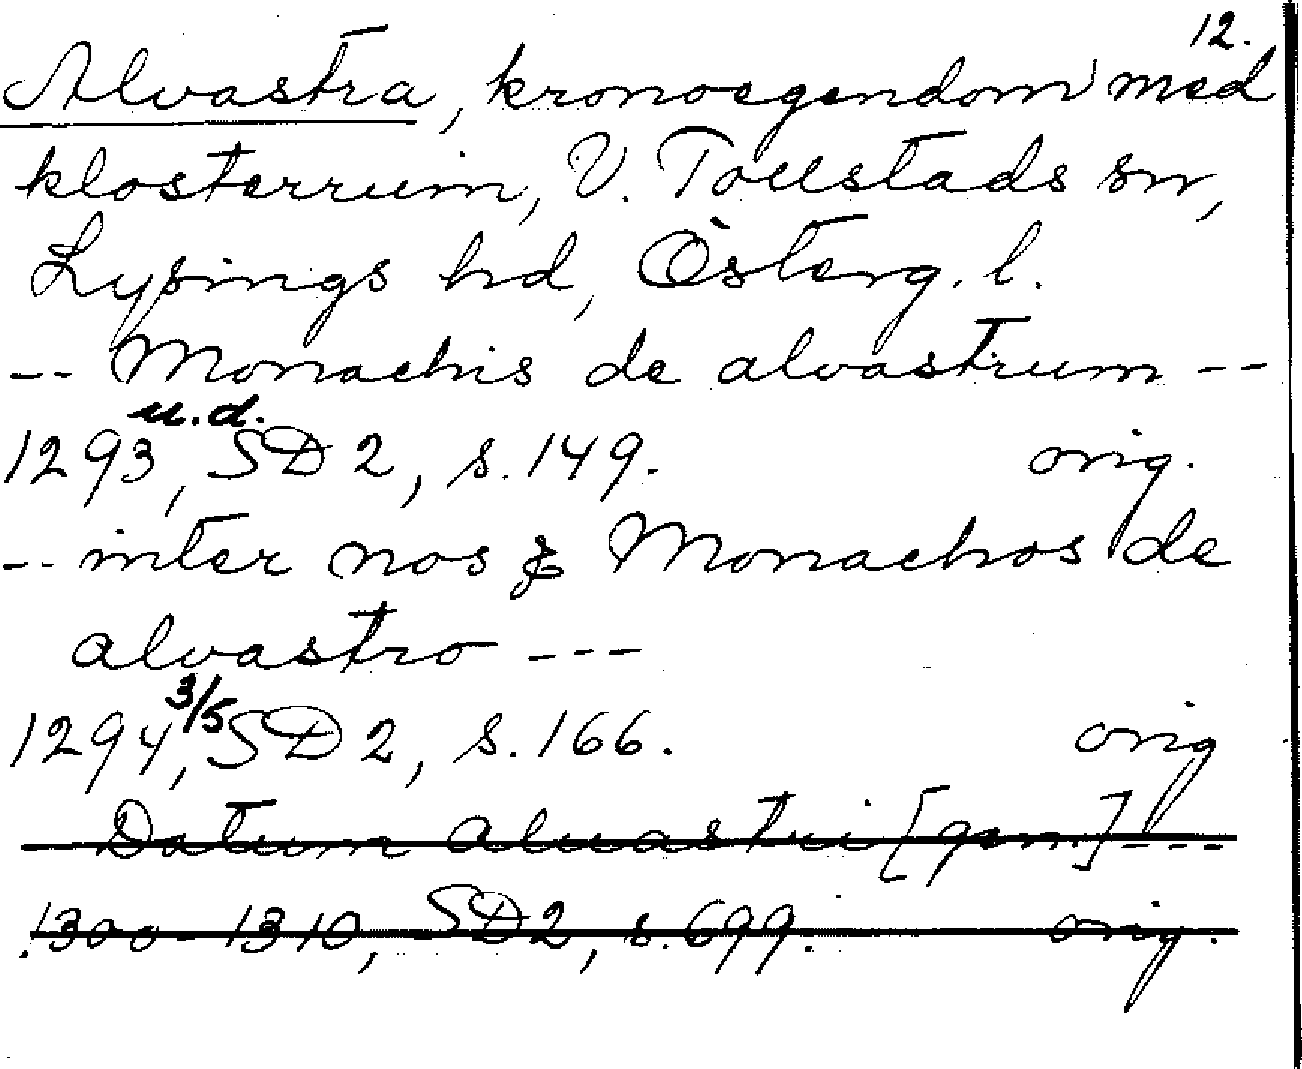 12.
Alvastra, kronoegendom med
klosterruin, V. Tollstads sn,
Lysings hd, Österg. l.
-- Monachis de alvastrum --
u.d.
1293, SD 2, s. 149. orig.
-- inter nos & Monachos de
alvastro ---
3/5
1294, SD 2, s. 166. orig
Datum aluastri [gen.] ---
1300-1310, SD 2, s. 699. orig.